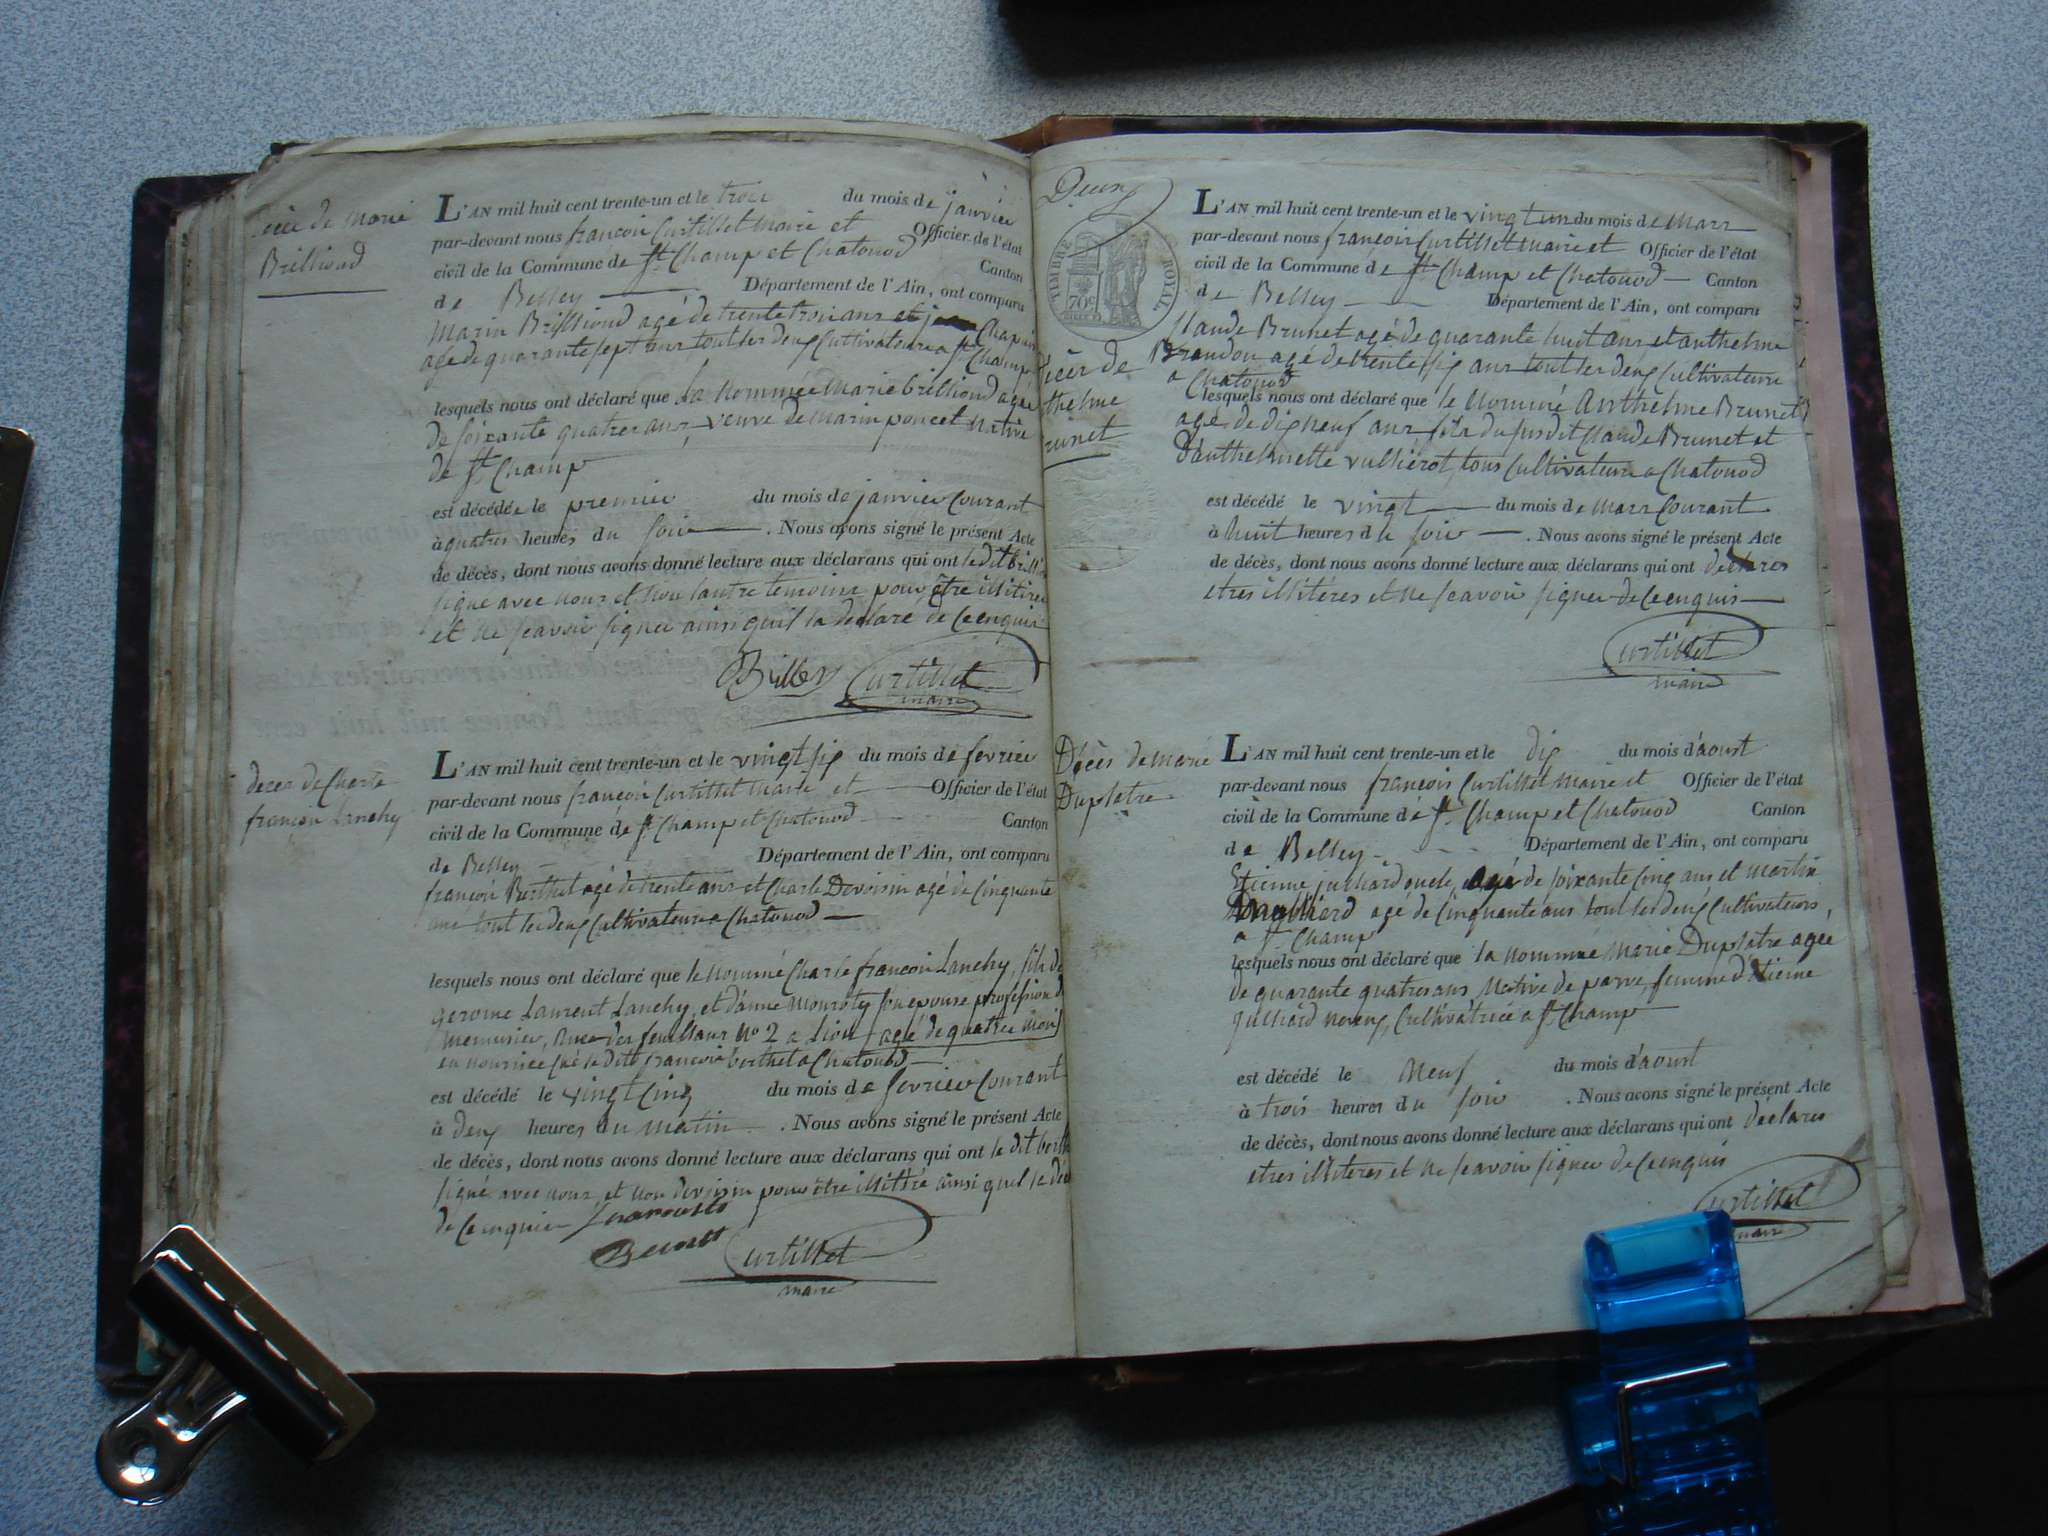 décès de Marie
Brillioud
L'AN mil huit cent trente-un et le trois du mois de janvier
par-devant nous françois Curtillet Maire et Officier de l'état
civil de la Commune de St Champ et Chatonod Canton
de Belley Département de l'Ain, ont comparu
Marin Brillioud agé de trente trois ans et Chapuis
agé de quarante sept ans tout les deux Cultivateurs a St Champ
lesquels nous ont déclaré que la Nommée Marie brillioud agée
de soixante quatres ans, veuve de Marin poncet Native
de St Champ
est décédée le premier du mois de janvier Courant
à quatres heures du soir. Nous avons signé le présent Acte
de décès, dont nous avons donné lecture aux déclarans qui ont le dit
signé avec nous et non l'autre temoins pour être illitires
et ne sçavoir signer ainsi quil la déclaré de Ce enquis
Curtillet
maire
deces de Charle
françois Lanchy
L'AN mil huit cent trente-un et le vingt six du mois de fevrier
par-devant nous françois Curtillet Maire et Officier de l'état
civil de la Commune de St Champ et Chatonod Canton
de Belley Département de l'Ain, ont comparu
françois Berthet agé de trente ans et Charle Devoisin agé de Cinquante
ans tout les deux Cultivateurs a Chatonod
lesquels nous ont déclaré que le Nommé Charle françois Lanchy, fils de
gerome Laurent Lanchy, et d'anne son epouse profession d
menuisier, Rue des feuillans No 2 a Lion agé de quatres mois
en nourrice ché le dit françois berthet a Chatonod
est décédé le vingt Cinq du mois de fevrier Courant
à deux heures du matin. Nous avons signé le présent Acte
de décès, dont nous avons donné lecture aux déclarans qui ont le dit
signé avec nous et non devoisin pour être illittré ainsi quel le
de Ce enquis
Curtillet
maire
TIMBRE ROYAL
70c
écès de
thelme
runet
L'AN mil huit cent trente-un et le vingt un du mois de Mars
par-devant nous françois Curtillet Maire et Officier de l'état
civil de la Commune de St Champ et Chatonod Canton
de Belley Département de l'Ain, ont comparu
Claude Brunet agé de quarante huit ans et anthelme
Brandon agé de trente six ans tout les deux Cultivateurs
a Chatonod
lesquels nous ont déclaré que le Nommé Anthelme Brunet
agé de dix neuf ans fils du susdit Claude Brunet et
d'anthelmette vulliérot, tous Cultivateurs a Chatonod
est décédé le vingt du mois de mars Courant
à huit heures du soir. Nous avons signé le présent Acte
de décès, dont nous avons donné lecture aux déclarans qui ont déclares
etres illitéres et ne sçavoir signer de Ce enquis
Curtillet
maire
Décès de Marie
Duplatre
L'AN mil huit cent trente-un et le dix du mois d'aoust
par-devant nous françois Curtillet Maire et Officier de l'état
civil de la Commune de St Champ et Chatonod Canton
de Belley Département de l'Ain, ont comparu
Etienne julliard agé de soixante Cinq ans et Martin
agé de Cinquante ans tout les deux Cultivateurs,
a St Champ
lesquels nous ont déclaré que la nommée Marie Duplatre agée
de quarante quatres ans Native de parve, femme d'etienne
julliard neveux, Cultivatrice a St Champ
est décédé le Neuf du mois d'aoust
à trois heures du soir. Nous avons signé le présent Acte
de décès, dont nous avons donné lecture aux déclarans qui ont declares
etres illiteres et ne sçavoir signer de Ce enquis
Curtillet
maire